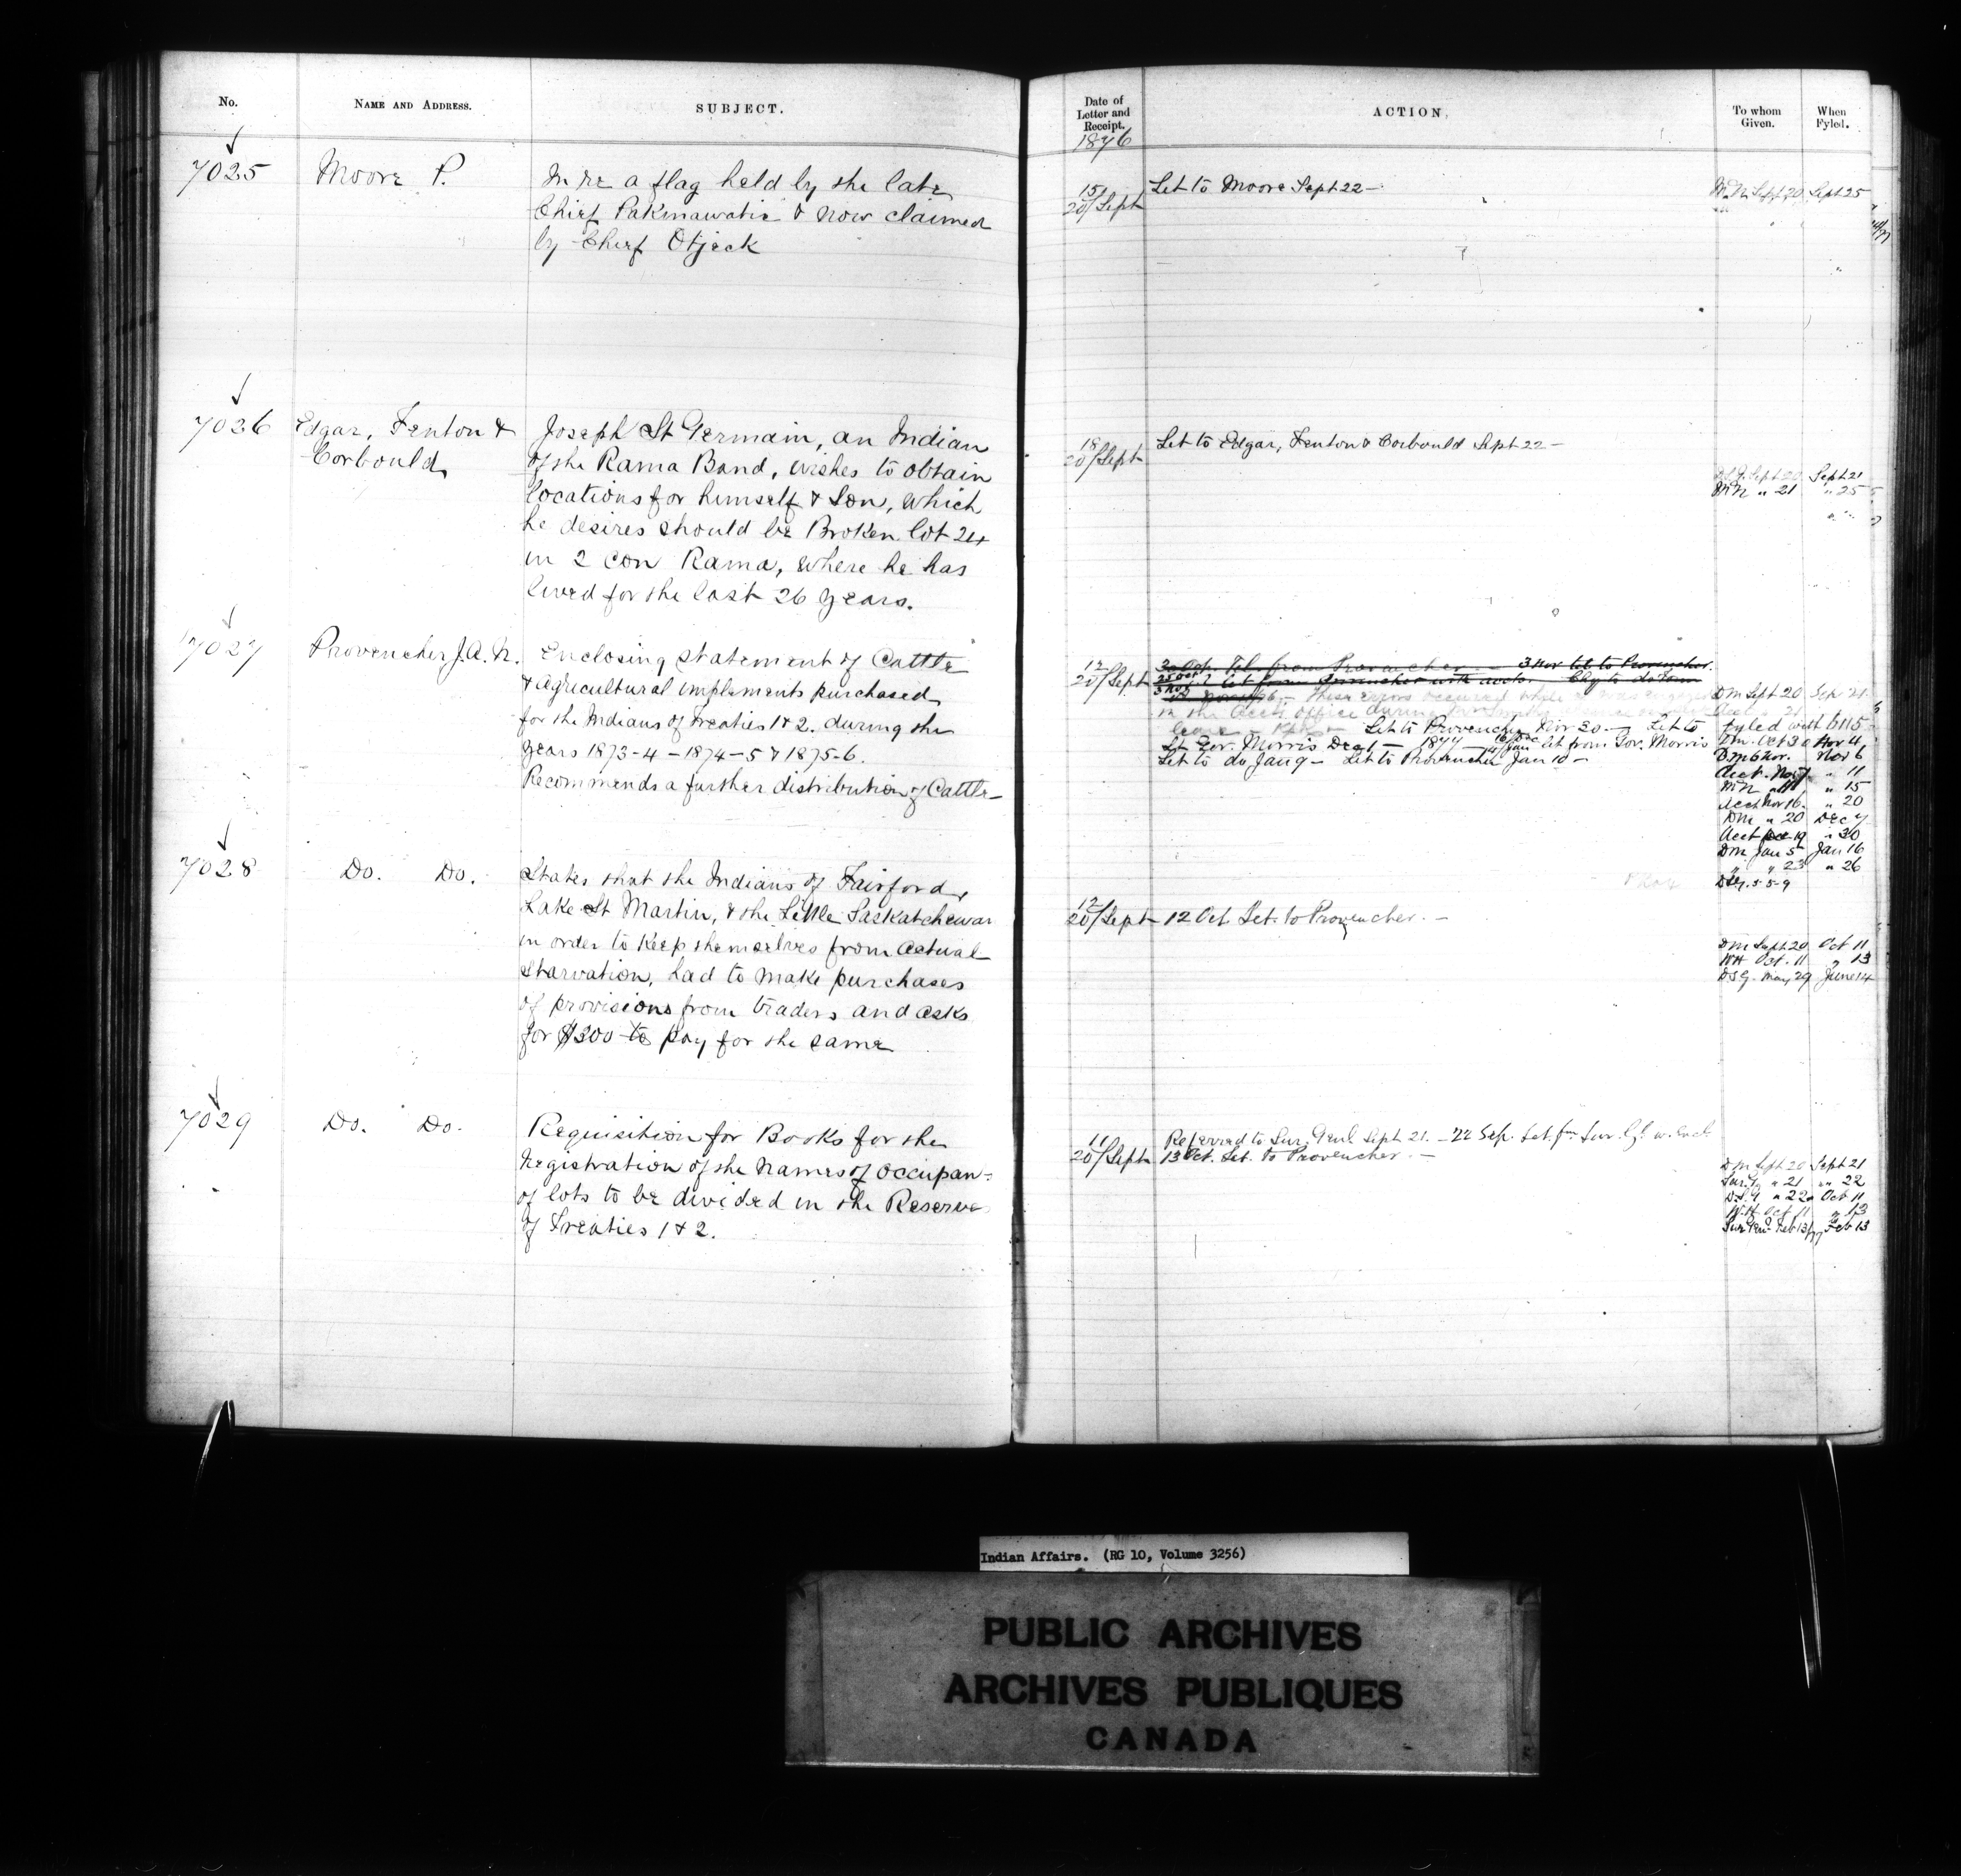 No.
NAME AND ADDRESS.
SUBJECT.
7025
Moore P.
In re a flag held by the late
Chief Pakinawatis & now claimed
by Chief Otjeck
7026
Edgar, Fenton &
Corbould
Joseph St Germain, an Indian
of the Rama Band, wishes to obtain
locations for himself & Son, which
he desires should be Broken lot 24
in 2 con Rama, where he has
lived for the last 26 years.
7027
Provencher J.A.N.
Enclosing statement of Cattle
& agricultural implements purchased
for the Indians of Treaties 1 & 2. during the
years 1873-4 - 1874-5 & 1875-6.
Recommends a further distribution of Cattle
7028
Do. Do.
States that the Indians of Fairford,
Lake St Martin, & the Little Saskatchewan
in order to keep themselves from actual
starvation, had to make purchases
of provisions from traders and asks
for $300 to pay for the same
7029
Do. Do.
Requisition for Books for the
registration of the names of occupan=
of lots to be divided in the Reserve
of Treaties 1 & 2.
Date of
Letter and
Receipt.
ACTION,
To whom
Given.
When
Fyled.
1876
15/
20/Sept
Let to Moore Sept 22 -
Sept 20 Sept 25
18/
20/Sept
Let to Edgar, Fenton & Corbould Sept 22 -
Sept 20 Sept 21
" 21 " 25
12
20/Sept
Tel. from Provencher - 3 Nov let to Provencher.
let from Provencher with accts.
These errors occurred while
in the Acct's office during
leave Let to Provencher Nov 20 - Let to
Lt Gov. Morris Dec 1 - 1877 - 4 Jan let from Gov. Morris
Let to do Jan 9 - Let to Provencher Jan 10 -
DM Sept 20 Sep 21
fyled with 6115
Dm. Oct 30 Nov 4
Dm 6 Nov. Nov 6
Acct. Nov 7 " 11
" 15
Acct Nov 16. " 20
DM " 20 Dec 7
Acct Dec 19 " 30
DM Jan 5 Jan 16
" " 23 " 26
12
20/Sept
12 Oct Let. to Provencher. -
DM Sept 20 Oct 11
WH Oct. 11 " 13
DSG. May 29 June 14
11
20/Sept
Referred to Sur. Genl Sept 21. - 22 Sep. Let. fm Sur. Gl. w. Encl.
13 Oct. Let. to Provencher. -
DM Sept 20 Sept 21
Sur. G. " 21 " 22
D.S.G " 22 Oct 11
WH Oct 11 " 13
Sur Gen. Feb 13/77 Feb 13
Indian Affairs. (RG 10, Volume 3256)
PUBLIC ARCHIVES
ARCHIVES PUBLIQUES
CANADA